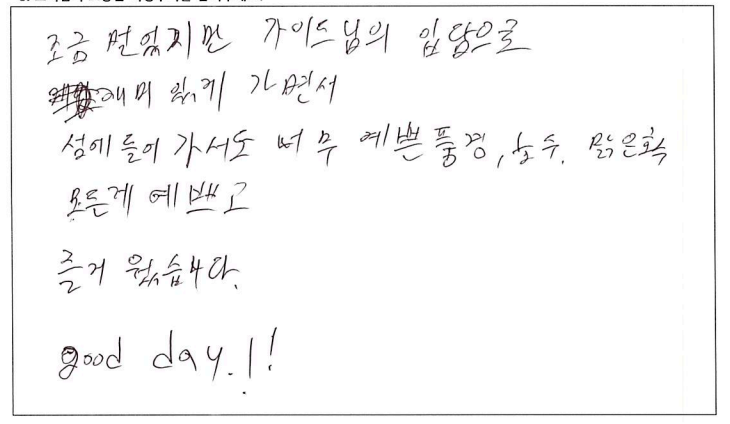 조금 멀었지만 가이드님의 입담으로
재미있게 가면서
섬에들어 가서도 너무 예쁜풍경, 호수. 맑은
모든게 예쁘고
즐거 웠습니다.
good day.!!